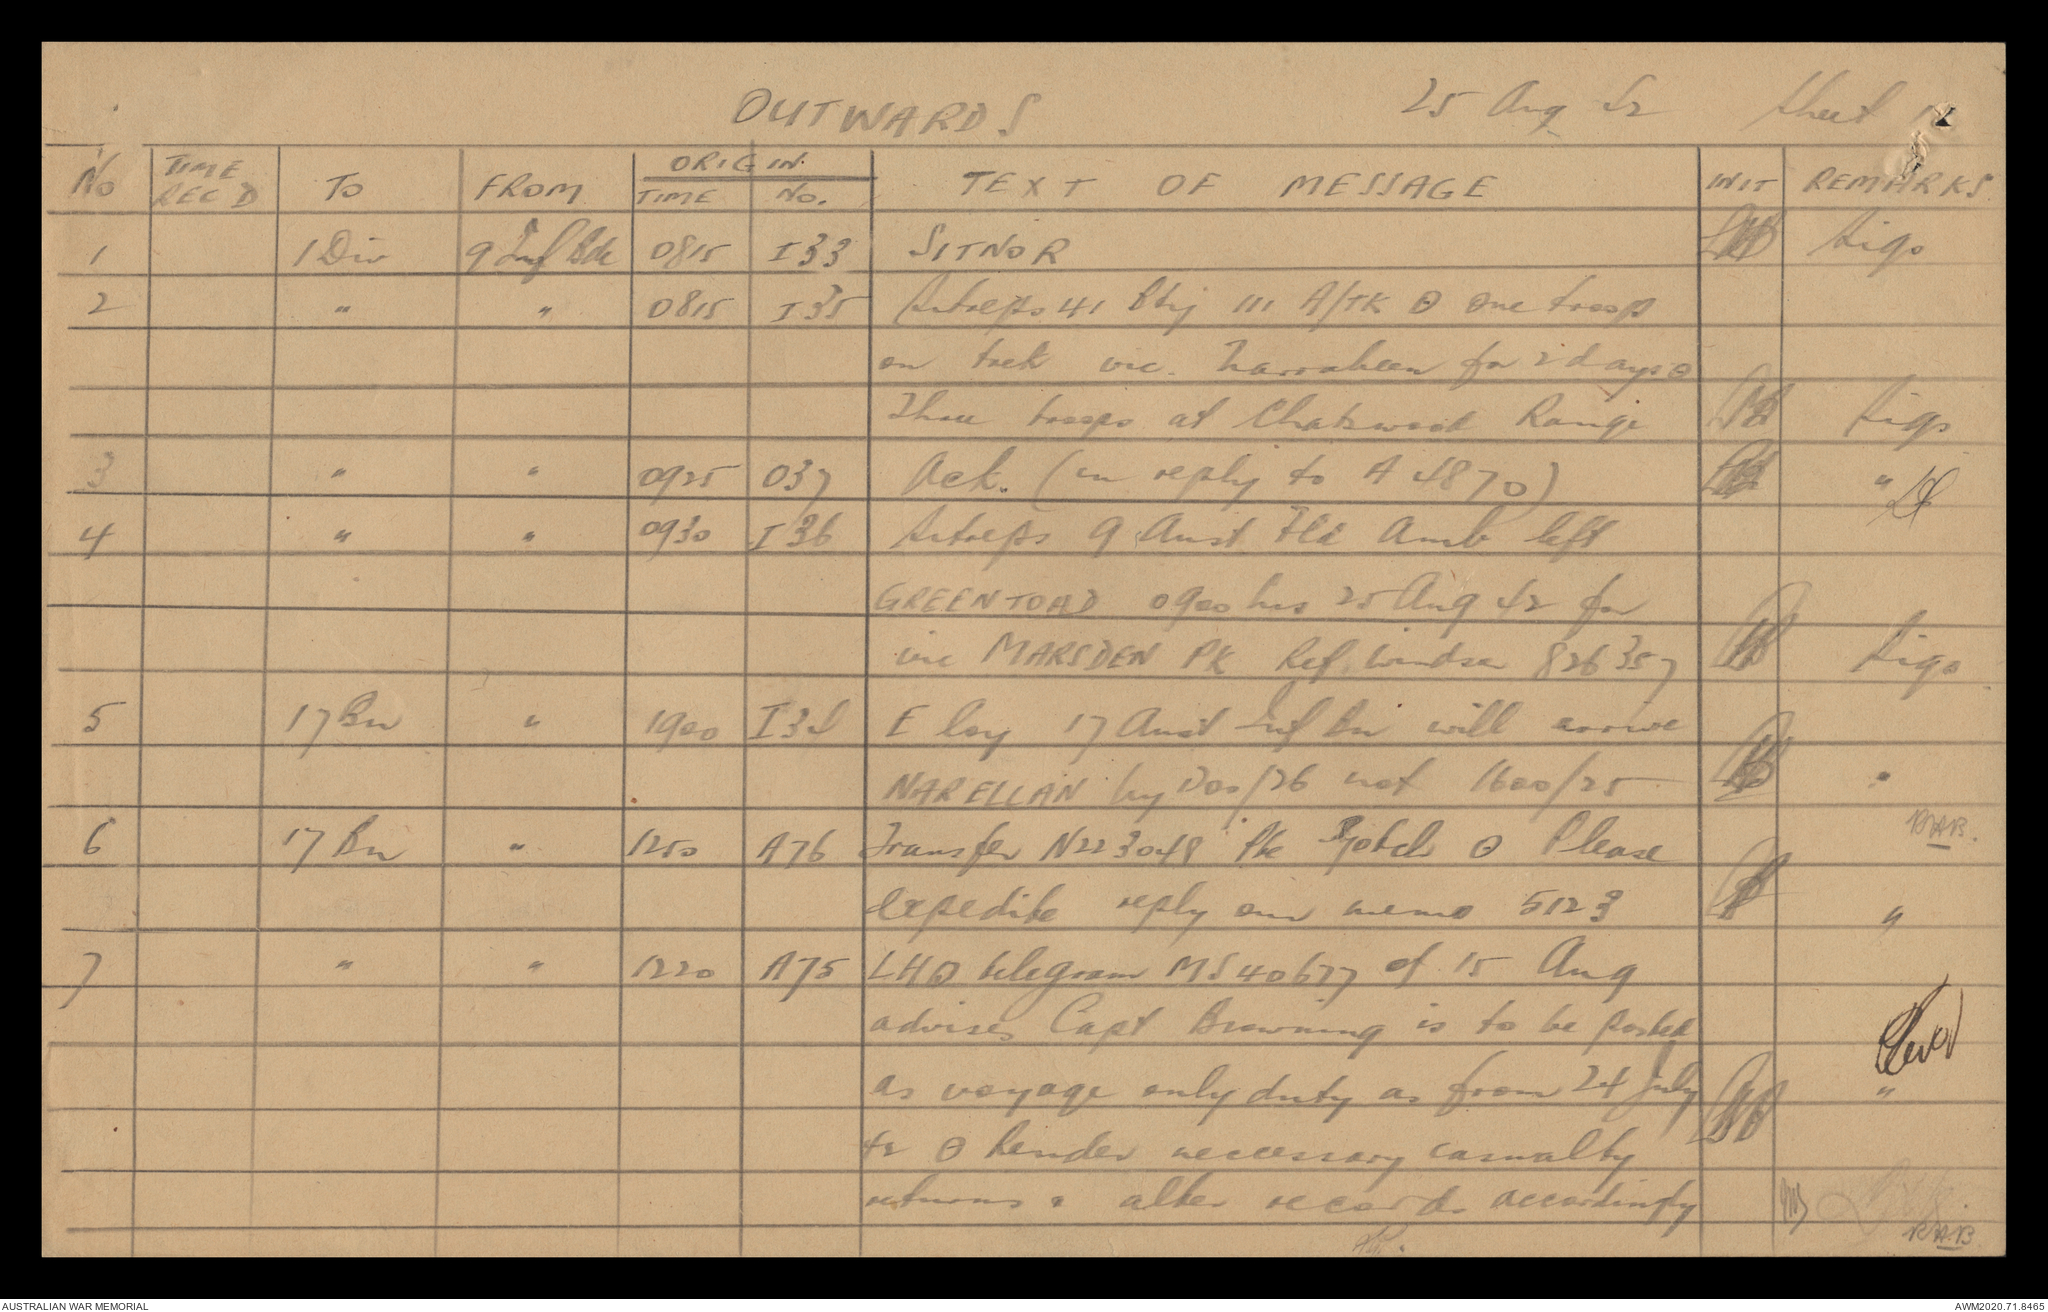 OUTWARDS 25 Aug 42 Sheet 1
No TIME REC'D TO FROM ORIGIN TIME No. TEXT OF MESSAGE INIT REMARKS
1 1 Div 9 Inf Bde 0815 I33 SITNOR Sigs
2 " " 0815 I35 Sitreps 41 Bty 111 A/TK θ One troop
on trek vic. Narrabeen for 2 days θ
Three troops at Chatswood Range Sigs
3 " " 0925 O37 Ack. (in reply to A 4870) "
4 " " 0930 I36 Sitreps 9 Aust Fld Amb left
GREENTOAD 0900 hrs 25 Aug 42 for
vic MARSDEN PK Ref. Windsor 826357 Sigs
5 17 Bn " 1900 E Coy 17 Aust Inf Bn will arrive
NARELLAN by /26 not 1600/25 "
RAB.
6 17 Bn " 1250 A76 Transfer N223048 Pte θ Please
expedite reply our memo 5123 "
7 " " 1220 A75 LHQ telegram MS40677 of 15 Aug
advises Capt Browning is to be posted
as voyage only duty as from 24 July "
42 θ Render neccessary casualty
returns & alter records accordingly
RAB
AUSTRALIAN WAR MEMORIAL AWM2020.71.8465